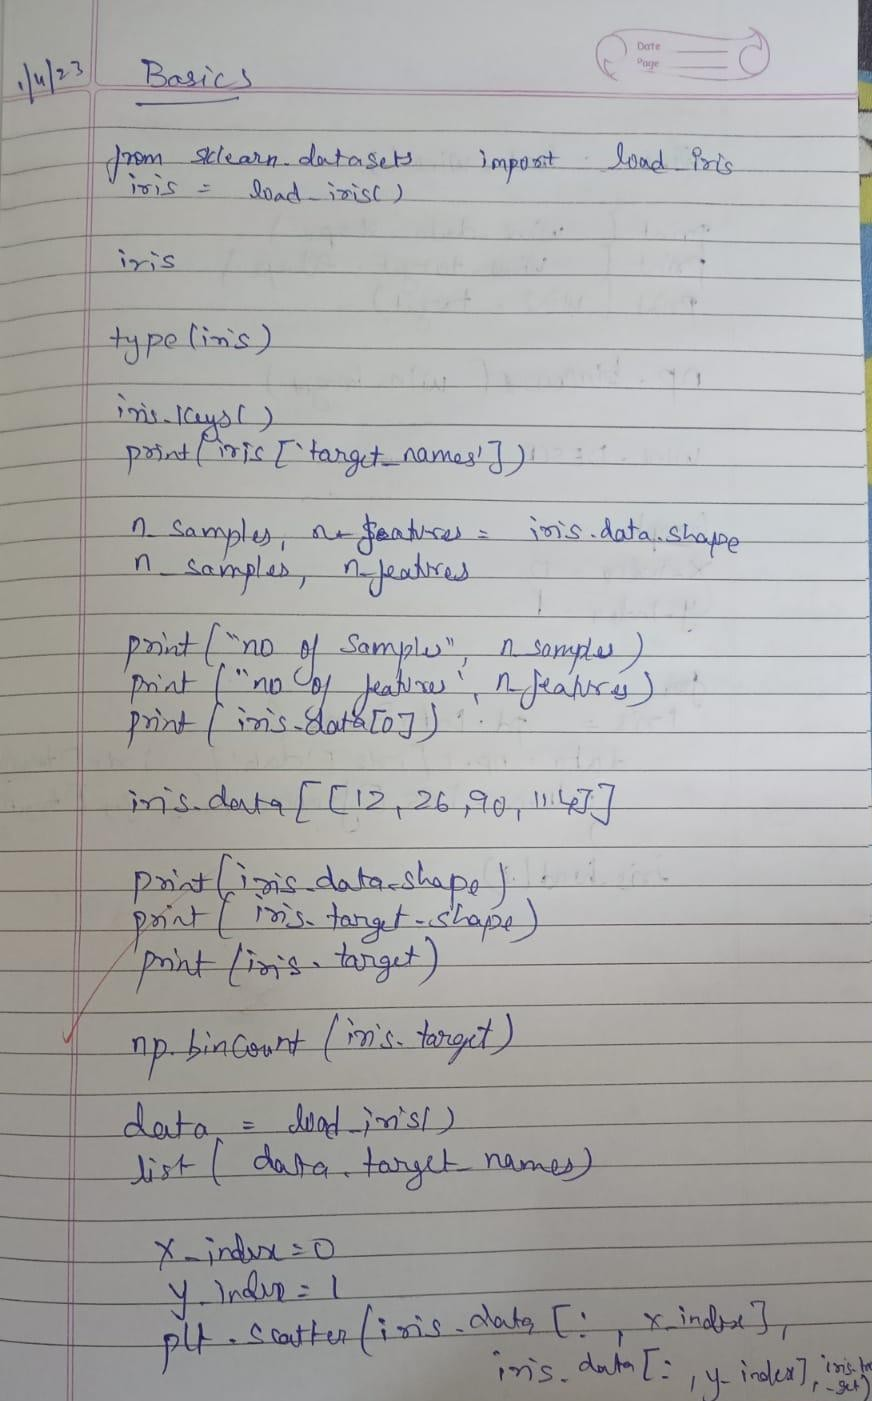 1/4/23 Basics
Date
Page
from sklearn.datasets import load_iris
iris = load_iris()
iris
type(iris)
iris.keys()
print(iris['target_names'])
n_samples, n_features = iris.data.shape
n_samples, n_features
print("no of samples", n_samples)
print("no of features", n_features)
print(iris.data[0])
iris.data[[12, 26, 90, 114]]
print(iris.data.shape)
print(iris.target.shape)
print(iris.target)
np.bincount(iris.target)
data = load_iris()
list(data.target_names)
x_index=0
y_index=1
plt.scatter(iris.data[:, x_index],
iris.data[:, y_index],